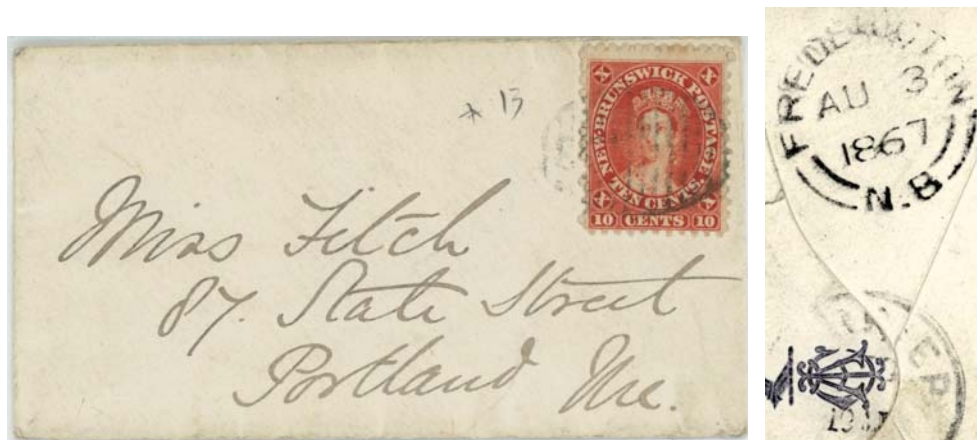 * 15
X NEW-BRUNSWICK POSTAGE. X
X TEN CENTS. X
10 CENTS 10
Miss Fitch
87. State Street
Portland Me.
FREDERICTON
AU 3
1867
N.B